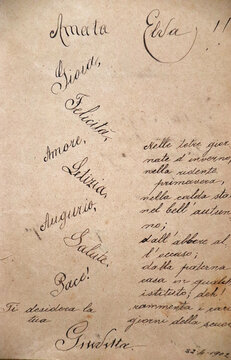 Amata Elsa !!
Gioia,
Felicità,
Amore,
Letizia,
Augurio,
Salute,
Pace!
Ti desidera la
tua
Giuditta
Nelle tetre gior
nate d'inverno,
nella ridente
primavera,
nella calda sta
nel bell'autun
no;
dall'albore al
l'occaso;
dalla paterna
casa in questo
istituto, deh!
rammenta i cari
giorni della scuola